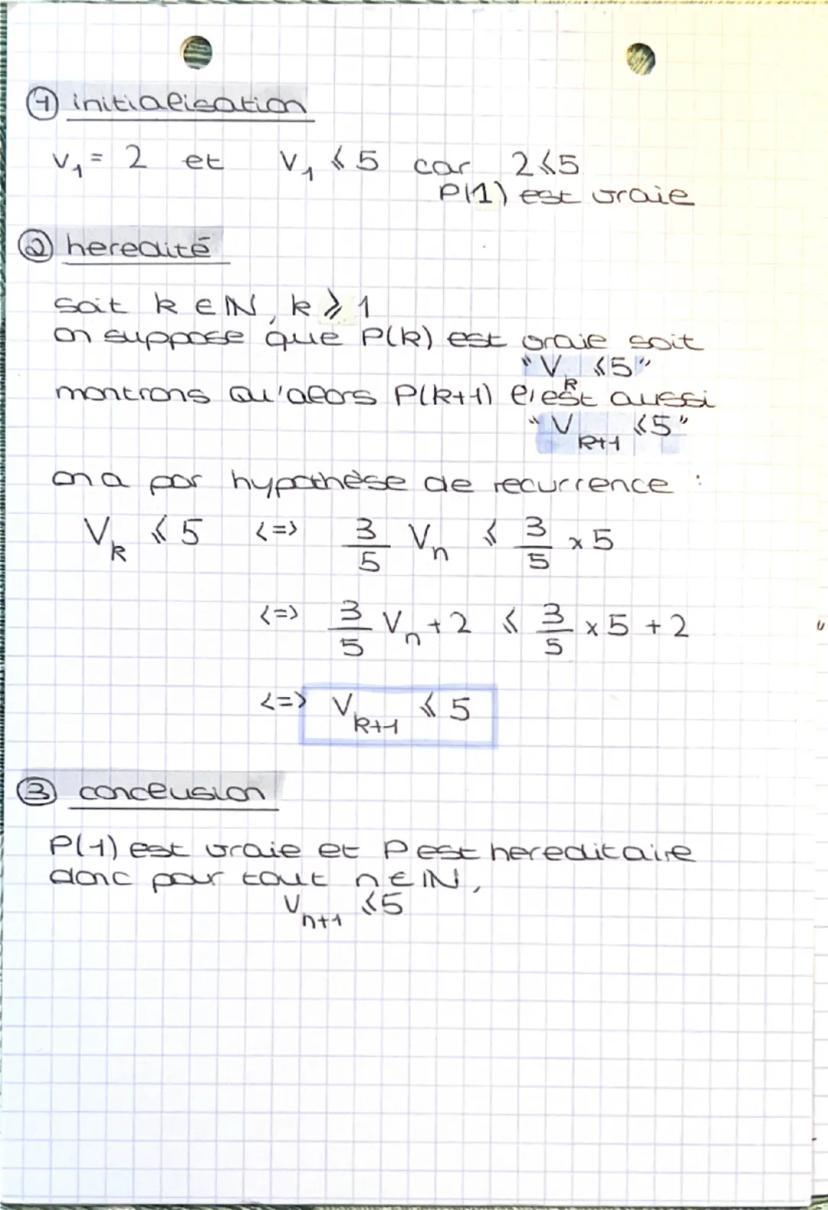 ① initialisation
V₁ = 2 et V₁ ⩽ 5 car 2 ⩽ 5
P(1) est vraie
② heredité
soit k ∈ ℕ, k ⩾ 1
on suppose que P(k) est vraie soit
"Vₖ ⩽ 5"
montrons qu'alors P(k+1) l'est aussi
"Vₖ₊₁ ⩽ 5"
on a par hypothèse de recurrence :
Vₖ ⩽ 5 <=> 3/5 Vₙ ⩽ 3/5 × 5
<=> 3/5 Vₙ + 2 ⩽ 3/5 × 5 + 2
<=> Vₖ₊₁ ⩽ 5
③ conclusion
P(1) est vraie et P est hereditaire
donc pour tout n ∈ ℕ,
Vₙ₊₁ ⩽ 5